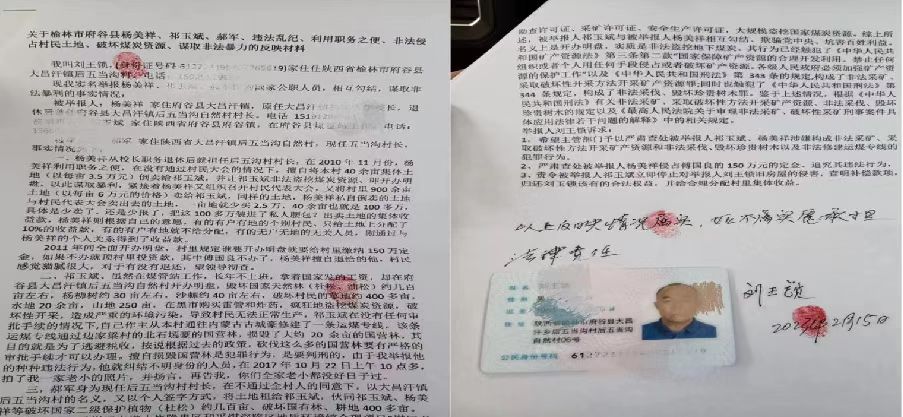 关于榆林市府谷县杨美祥、祁玉斌、郝军、违法乱纪、利用职务之便、非法侵
占村民土地、破坏煤炭资源、谋取非法暴力的反映材料
我叫刘王锁
家住任陕西省榆林市府谷县大
昌汗镇后五当沟村
我实名举报杨美祥、
国家公职人员，相互勾结，谋取非
法暴利的事实情况。
被举报人：杨美祥 家住府谷县大昌汗镇，原任大昌汗
休
后五当沟自然村村长，电话
玉斌 家住陕西省府谷县府谷镇，在府谷县
电话：
家住陕西省府谷县大昌汗镇后五当沟自然村，现任五当沟村长、
事实情况
一、杨美祥从校长职务退休后就担任后五沟村村长，在 2010 年 11 月份，杨
美祥利用职务之便，在没有通过村民大会的情况下，擅自将本村 40 余亩集体土
地（以每亩 3.5 万元）倒卖给祁玉斌，并让祁玉斌非法盗挖煤炭资源，明开办明
盘，以此谋取暴利，紧接着杨美祥又组织召开村民代表大会，又将村里 900 余亩
土地（以每亩 6 万元的价格）卖给祁玉斌，同样的土地，杨美祥私自倒卖的土地
与村民代表大会卖出去的土地，一亩地就少买 2.5 万，40 亩也就是 100 多万，
具体是少卖了，还是少报了，把这 100 多万装进了私人腰包？出卖土地的集体收
益款，杨美祥则根据自己的意愿，有的有户有地的个别村民，只给土地上分配了
10%的收益款，有的有户有地就不给分配，有的无户无地的人关人员，则通过与
杨美祥的个人关系得到了收益款。
2011 年间全面开办明盘，村里规定谁要开办明盘就要给村里缴纳 150 万定
金，如果不办就顶村里投资款，其中傅国良不办了，杨美祥擅自退给的他，村民
感觉猫腻很大，对于有没有退还，望领导彻查。
二、祁玉斌，虽然在煤管站工作，长年不上班，拿着国家发的工资，却在府
谷县大昌汗镇后五当沟自然村开办明盘，破坏国家天然林（杜松、油松）约几百
亩左右，杨柳树约 30 亩左右，沙棘约 40 亩左右，破坏村民的草地约 400 多亩，
水地 20 余亩，山地 250 亩，在黑市购买雷管和炸药，疯狂地盗挖煤炭资源，破
坏性开采，造成严重的环境污染，导致村民无法正常生产。祁玉斌在没有任何审
批手续的情况下，自己作主从本村通往内蒙古古城豪修建了一条运煤专线，该条
运煤专线通过边家梁村的北石场豪的国营林，摧毁了约 20 余亩的国营林，其
目的就是为了逃避税收，按说根据过去的政策，砍伐这么多的国营林要有严格的
审批手续才可以办理，擅自损毁国营林是犯罪行为，是要判刑的，由于我举报他
的种种违法行为，他就纠结不明身份的人员，在 2017 年 10 月 22 日上午 10 点多，
拍了我一家老小的照片，并扬言，再告我，你们全家老小都没好日子过。
三，郝军身为现任后五当沟村村长，在不通过全村人的同意下，以大昌汗镇
后五当沟村的名义，又以个人签字方式，将土地租给祁玉斌，伙同祁玉斌、杨美
祥等破坏国家二级保护植物（杜松）约几百亩、破坏国有林、耕地 400 多亩，
勘查许可证、采矿许可证、安全生产许可证，大规模盗挖国家煤炭资源，综上所
述，被举报人祁玉斌与被举报人杨美祥相互勾结、欺骗党中央、坑害百姓利益。
名义上是开办明盘，实质是非法盗挖地下煤炭，其行为已经触犯了《中华人民共
和国矿产资源法》第三条第二款"国家保障矿产资源的合理开发利用，禁止任何
组织或者个人用任何手段侵占或者破坏矿产资源，各级人民政府必须加强矿产资
源的保护工作"以及《中华人民共和国刑法》第 343 条的规定，构成了非法采矿、
采取破坏性开采方法开采矿产资源罪；同时也触犯了《中华人民共和国刑法》第
344 条规定，构成了非法采伐、毁坏珍贵树木罪，鉴于上述情况，根据《中华人
民共和国刑法》有关非法采矿、采取破坏性方法开采矿产资源、非法采伐、毁坏
珍贵树木的规定以及《最高人民法院关于审理非法采矿、破坏性采矿刑事案件具
体应用法律若干问题的解释》中的相关规定。
举报人刘王锁诉求：
1、希望主管部门予以严肃查处被举报人祁玉斌、杨美祥涉嫌构成非法采矿、采
取破坏性方法开采矿产资源和非法采伐、毁坏珍贵树木以及非法修建运煤专线的
犯罪行为。
2、严肃查处被举报人杨美祥侵占傅国良的 150 万元的定金、追究其违法行为，
3、责令被举报人祁玉斌立即停止对举报人刘王锁旧房屋的侵害，查明补偿款项，
归还刘王锁该有的合法权益，并给合理分配村里集体收益。
以上反映情况属实，如不属实愿承担
法律责任
刘王锁
2023年2月15日
陕西省
府谷县大昌
汗乡后五当沟村五当沟
自然村06号
公民身份号码